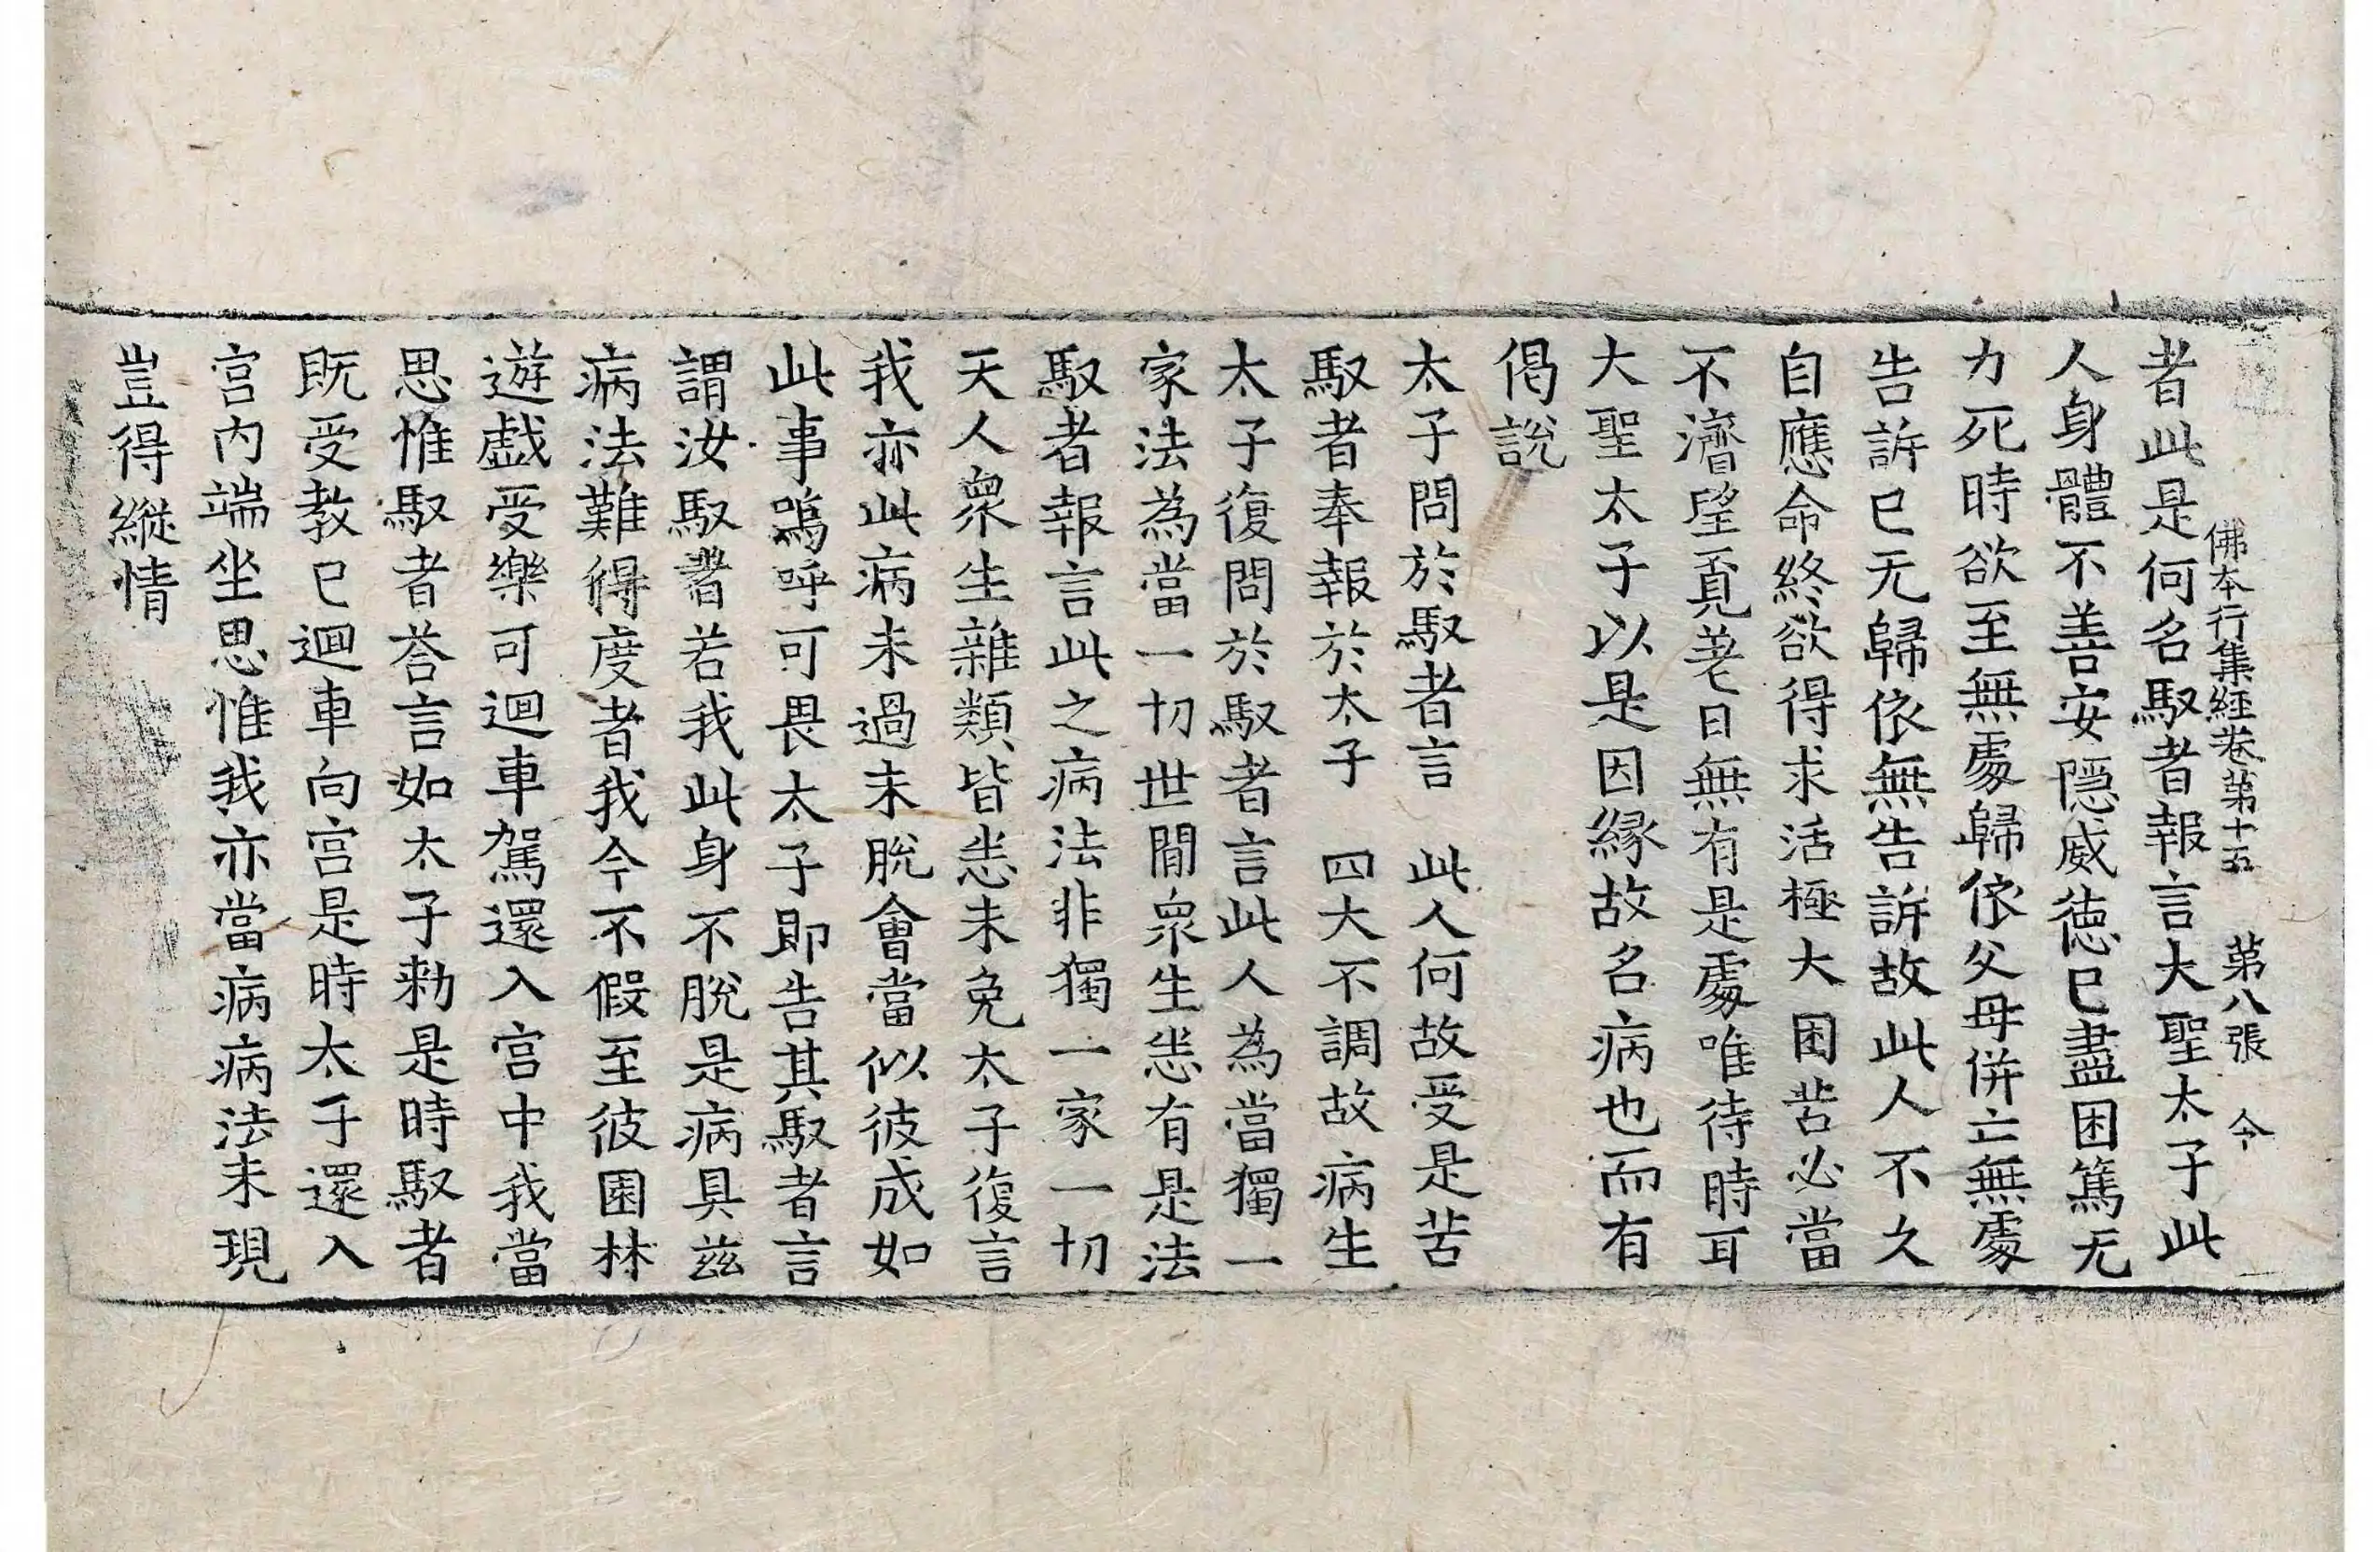 佛本行集經卷第十五　第八張　令
者此是何名馭者報言大聖太子此
人身體不善安隱威德已盡困篤无
力死時欲至無處歸依父母併亡無處
告訴已无歸依無告訴故此人不久
自應命終欲得求活極大困苦必當
不濟望覓差日無有是處唯待時耳
大聖太子以是因縁故名病也而有
偈說
太子問於馭者言　此人何故受是苦
馭者奉報於太子　四大不調故病生
太子復問於馭者言此人為當獨一
家法為當一切世間眾生悉有是法
馭者報言此之病法非獨一家一切
天人眾生雜類皆悉未免太子復言
我亦此病未過未脫會當似彼成如
此事嗚呼可畏太子即告其馭者言
謂汝馭者若我此身不脫是病具茲
病法難得度者我今不假至彼園林
遊戲受樂可迴車駕還入宮中我當
思惟馭者荅言如太子勑是時馭者
既受教已迴車向宮是時太子還入
宮內端坐思惟我亦當病病法未現
豈得縱情